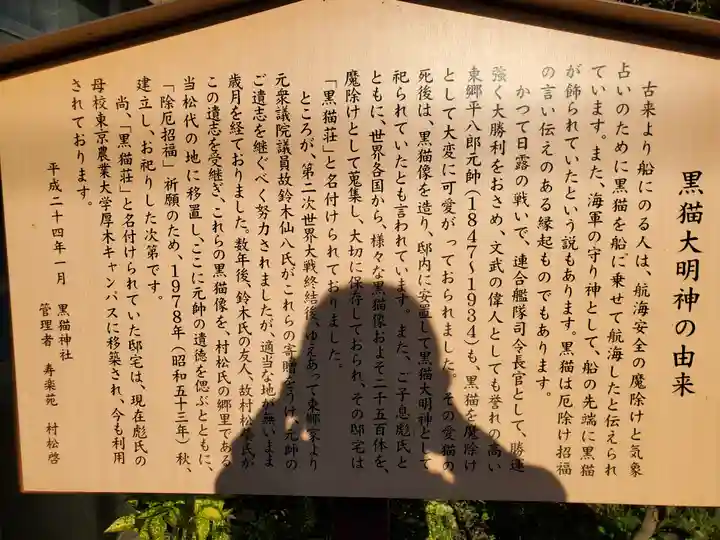 黒猫大明神の由来
古来より船にのる人は、航海安全の魔除けと気象
占いのために黒猫を船に乗せて航海したと伝えられ
ています。また、海軍の守り神として、船の先端に黒猫
が飾られていたという説もあります。黒猫は厄除け招福
の言い伝えのある縁起ものでもあります。
かつて日露の戦いで、連合艦隊司令長官として、勝運
強く大勝利をおさめ、文武の偉人としても誉れの高い
東郷平八郎元帥(1847～1934)も、黒猫を魔除け
として大変に可愛がっておられました。その愛猫の
死後は、黒猫像を造り、邸内に安置して黒猫大明神として
祀られていたとも言われています。また、ご子息彪氏と
ともに、世界各国から、様々な黒猫像およそ二千五百体を、
魔除けとして蒐集し、大切に保存しておられ、その邸宅は
「黒猫荘」と名付けられておりました。
ところが、第二次世界大戦終結後、ゆえあって東郷家より
元衆議院議員故鈴木仙八氏がこれらの寄贈をうけ、元帥の
ご遺志を継ぐべく努力されましたが、適当な地が無いまま
歳月を経ておりました。数年後、鈴木氏の友人、故村松 氏が
この遺志を受継ぎ、これらの黒猫像を、村松氏の郷里である
当松代の地に移置し、ここに元帥の遺徳を偲ぶとともに、
「除厄招福」祈願のため、1978年(昭和五十三年)秋、
建立し、お祀りした次第です。
尚、「黒猫荘」と名付けられていた邸宅は、現在彪氏の
母校東京農業大学厚木キャンパスに移築され、今も利用
されております。
平成二十四年一月 黒猫神社
管理者 寿楽苑 村松啓